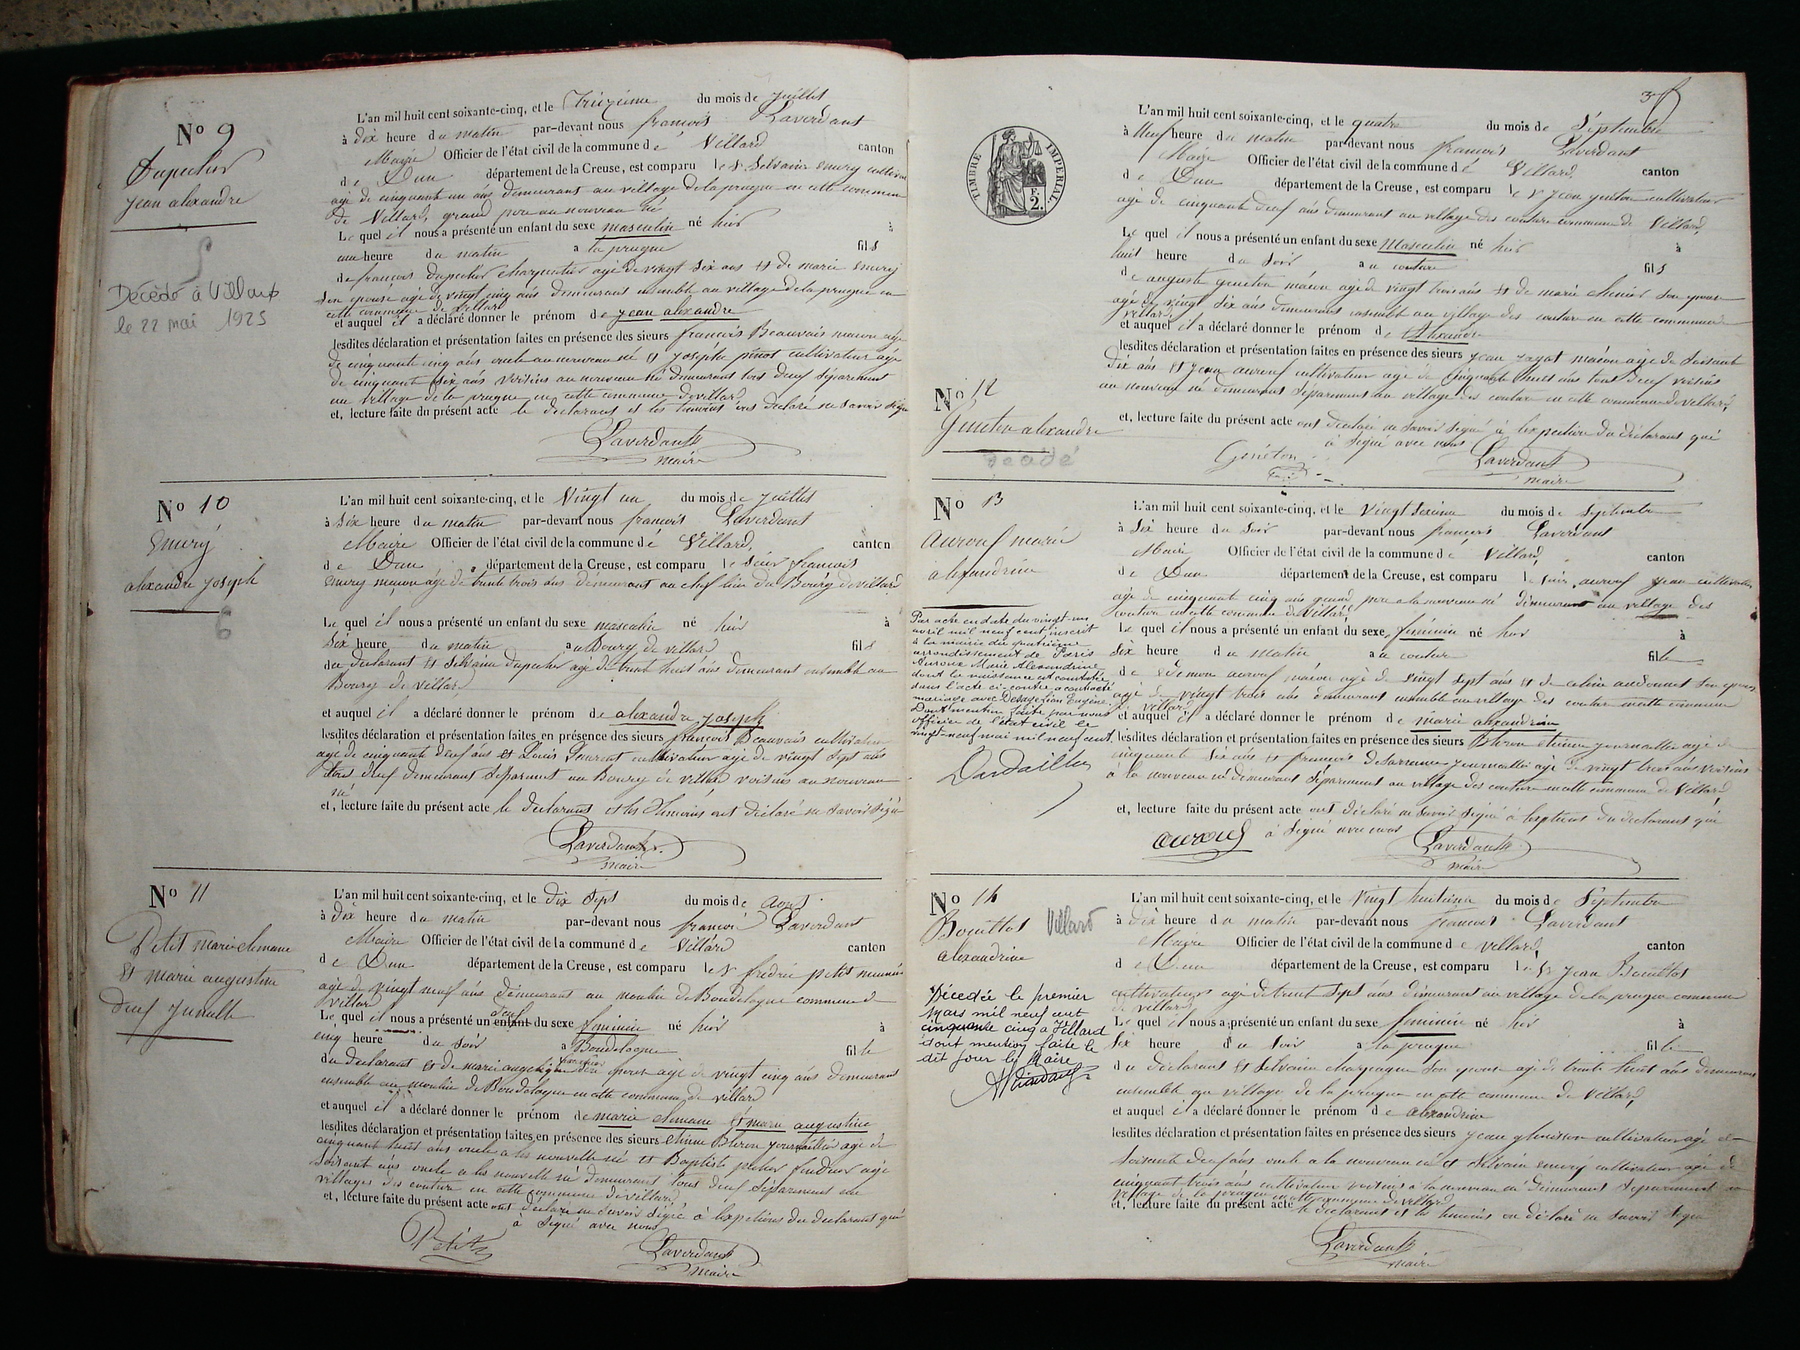 No 9
Dupechier
jean alexandre
Décédé à Villard
le 22 mai 1925
L'an mil huit cent soixante-cinq, et le Treizième du mois de juillet
à dix heure du matin par-devant nous françois Laverdant
Maire Officier de l'état civil de la commune dé Villard canton
de Dun département de la Creuse, est comparu le Sr Silvain emery
age de cinquante un ans demeurant au village de la prugne en cette commune
de Villard, grand père au nouveau né
Le quel il nous a présenté un enfant du sexe masculin né hier à
une heure du matin a la prugne fils
de françois dupecher charpentier agé de vingt six ans et de marie emery
son epouse agé de vingt cinq ans demeurant ensemble au village de la prugne en
cette commune de Villard
et auquel il a déclaré donner le prénom de jean alexandre
lesdites déclaration et présentation faites en présence des sieurs francois Beauvais macon agé
de cinquante cinq ans oncle au nouveau né et joseph pinot cultivateur age
de cinquante six ans voisins au nouveau né demeurant tous deux séparement
au village de la prugne en cette commune de villard
et, lecture faite du présent acte le déclarant et les temoins ont déclaré ne savoir signé
Laverdant
maire
No 10
Emery
alexandre joseph
6
L'an mil huit cent soixante-cinq, et le Vingt un du mois de juillet
à six heure du matin par-devant nous françois Laverdant
Maire Officier de l'état civil de la commune dé Villard, canton
de Dun département de la Creuse, est comparu le sieur francois
emery maçon age de trente trois ans demeurant au chef lieu du Bourg de villard
Le quel il nous a présenté un enfant du sexe masculin né hier à
six heure du matin au Bourg de villard fils
du declarant et Silvaine dupecher agé de trente huit ans demeurant ensemble au
Bourg de villard
et auquel il a déclaré donner le prénom de alexandre joseph
lesdites déclaration et présentation faites en présence des sieurs françois Beauvais cultivateur
age de cinquante deux ans et Louis Laurent cultivateur age de vingt sept ans
tous deux demeurant séparement au Bourg de villard voisins au nouveau
né
et, lecture faite du présent acte le declarant et les témoins ont déclaré ne savoir signé
Laverdant
maire
No 11
Petit marie clemane
Et marie augustine
deux jumelle
L'an mil huit cent soixante-cinq, et le dix sept du mois de aout
à dix heure du matin par-devant nous françois Laverdant
Maire Officier de l'état civil de la commune de Villard canton
de Dun département de la Creuse, est comparu le Sr fredric petit meunier
age de vingt neuf ans demeurant au moulin de Boudelogne commune de
Villard
Le quel il nous a présenté un enfant deux du sexe feminin né hier à
cinq heure du soir a Boudelogne fille
du declarant et de marie son epouse age de vingt cinq ans demeurant
ensemble au moulin de Boudelogne en cette commune de villard
et auquel il a déclaré donner le prénom de marie clemane et marie augustine
lesdites déclaration et présentation faites en présence des sieurs etienne journalier age de
cinquante huit ans oncle a les nouvelle né et Baptiste pecher age
soixante ans oncle a les nouvelle né demeurant tous deux séparement au
villages des couture en cette commune de villard
et, lecture faite du présent acte ont déclaré ne savoir signé à l'exception du declarant qui
à signé avec nous
Petit
Laverdant
maire
3
TIMBRE IMPERIAL
F.
2.
No 12
Geneton alexandre
décédé
L'an mil huit cent soixante-cinq, et le quatre du mois de Septembre
à Neuf heure du matin par-devant nous françois Laverdant
Maire Officier de l'état civil de la commune dé Villard, canton
de Dun département de la Creuse, est comparu le Sr jean geneton cultivateur
agé de cinquante deux ans demeurant au village des couture commune de Villard,
Le quel il nous a présenté un enfant du sexe Masculin né hier à
huit heure du soir a u couture fils
de auguste geneton maçon agé de vingt trois ans et de marie chenier son epouse
agé de vingt six ans demeurant ensemble au village des couture en cette commune de
villard
et auquel il a déclaré donner le prénom de Alexandre
lesdites déclaration et présentation faites en présence des sieurs jean macon age de soixante
dix ans et jean aurouf cultivateur age de cinquante huit ans tous deux voisins
au nouveau né demeurant séparement au village des couture en cette commune de villard,
et, lecture faite du présent acte ont déclaré ne savoir signé à l'exception du déclarant qui
à signé avec nous
Genéton
Laverdant
maire
No 13
aurouf marie
alexandrine
Par acte en date du vingt-un
avril mil neuf cent inscrit
à la mairie du quatrième
arrondissement de Paris
Auroux Marie Alexandrine
dont la naissance est constatée
dans l'acte ci-contre a contracté
mariage avec Eugène
Dont mention faite par nous
officier de l'état civil le
vingt-neuf mai mil neuf cent.
Dardaillon
L'an mil huit cent soixante-cinq, et le Vingt sixieme du mois de septembre
à six heure du soir par-devant nous françois Laverdant
Maire Officier de l'état civil de la commune dé Villard, canton
de Dun département de la Creuse, est comparu le sieur aurouf jean cultivateur
age de cinquante cinq ans grand pere a la nouveau né demeurant au village des
couture en cette commune de Villard
Le quel il nous a présenté un enfant du sexe, feminin né hier à
six heure du matin a u couture fille
de aurouf macon agé de vingt sept ans et de celine son epouse
age de vingt trois ans demeurant ensemble au village des couture en cette commune
de Villard
et auquel il a déclaré donner le prénom de marie alexandrine
lesdites déclaration et présentation faites en présence des sieurs etienne journallier agé de
cinquante six ans et francois journallie age de vingt trois ans voisins
à la nouveau né demeurant séparement au village des couture en cette commune de Villard,
et, lecture faite du présent acte ont déclaré ne savoir signé à l'exptions du declarant qui
à signé avec nous
auroux
Laverdant
maire
No 14
Bouillot Villard
alexandrine
Décedée le premier
Mars mil neuf cent
cinquante cinq à Villard
dont mention faite le
dit jour le Maire
L'an mil huit cent soixante-cinq, et le Vingt huitieme du mois de Septembre
à dix heure du matin par-devant nous francois Laverdant
Maire Officier de l'état civil de la commune de villard, canton
de Dun département de la Creuse, est comparu le Sr jean Bouillot
cultivateur agé de trente sept ans demeurant au village de la prugne commune
de villard
Le quel il nous a présenté un enfant du sexe feminin né hier à
six heure du soir a la prugne fille
du déclarant et Silvaine charpagne son epouse agé de trente huit ans demeurant
ensemble au village de la prugne en cette commune de Villard,
et auquel il a déclaré donner le prénom de alexandrine
lesdites déclaration et présentation faites en présence des sieurs jean cultivateur agé de
soixante deux ans oncle a la nouveau né et Silvain emery cultivateur age de
cinquante trois ans cultivateur voisins a la nouveau né demeurant séparement au
village de la prugne en cette commune de villard
et, lecture faite du présent acte le declarant et les temoins on déclaré ne savoir signé
Laverdant
maire